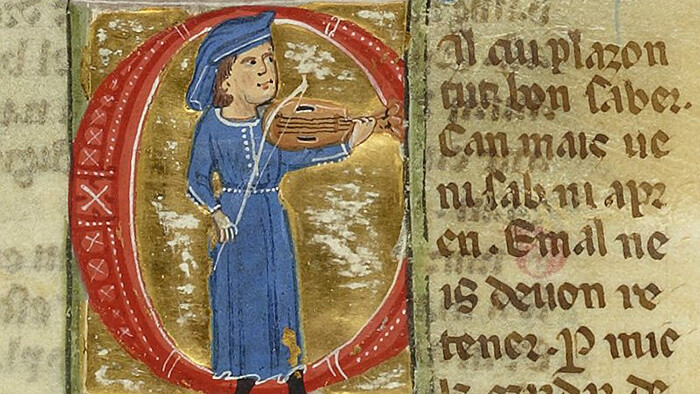 Cal cui plazon
tuit bon saber.
Can mais ue
ni sab ni apr
en. E mal ne
is deuon re
tener. P mie